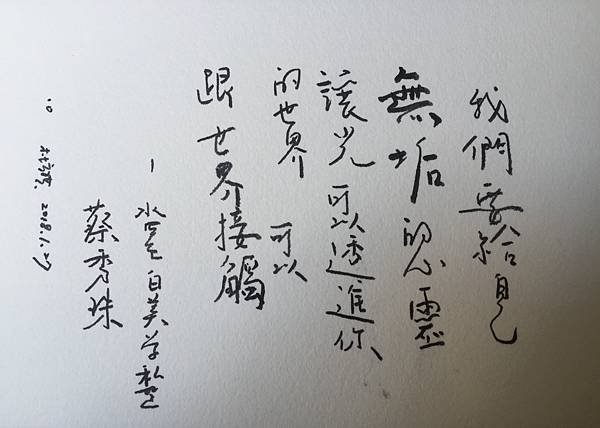 我們要給自己
無垢的心靈
讓光可以透進你
的世界 可以
跟世界接觸
美学塾
蔡秀珠
2018.1.27